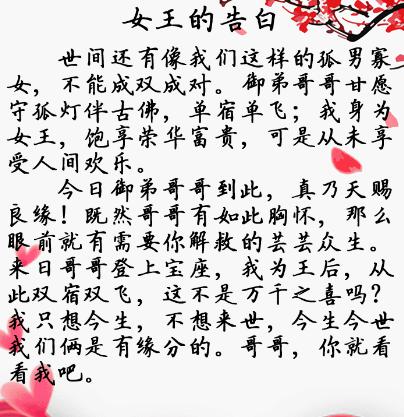 女王的告白
世间还有像我们这样的孤男寡
女，不能成双成对。御弟哥哥甘愿
守孤灯伴古佛，单宿单飞；我身为
女王，饱享荣华富贵，可是从未享
受人间欢乐。
今日御弟哥哥到此，真乃天赐
良缘！既然哥哥有如此胸怀，那么
眼前就有需要你解救的芸芸众生。
来日哥哥登上宝座，我为王后，从
此双宿双飞，这不是万千之喜吗？
我只想今生，不想来世，今生今世
我们俩是有缘分的。哥哥，你就看
看我吧。